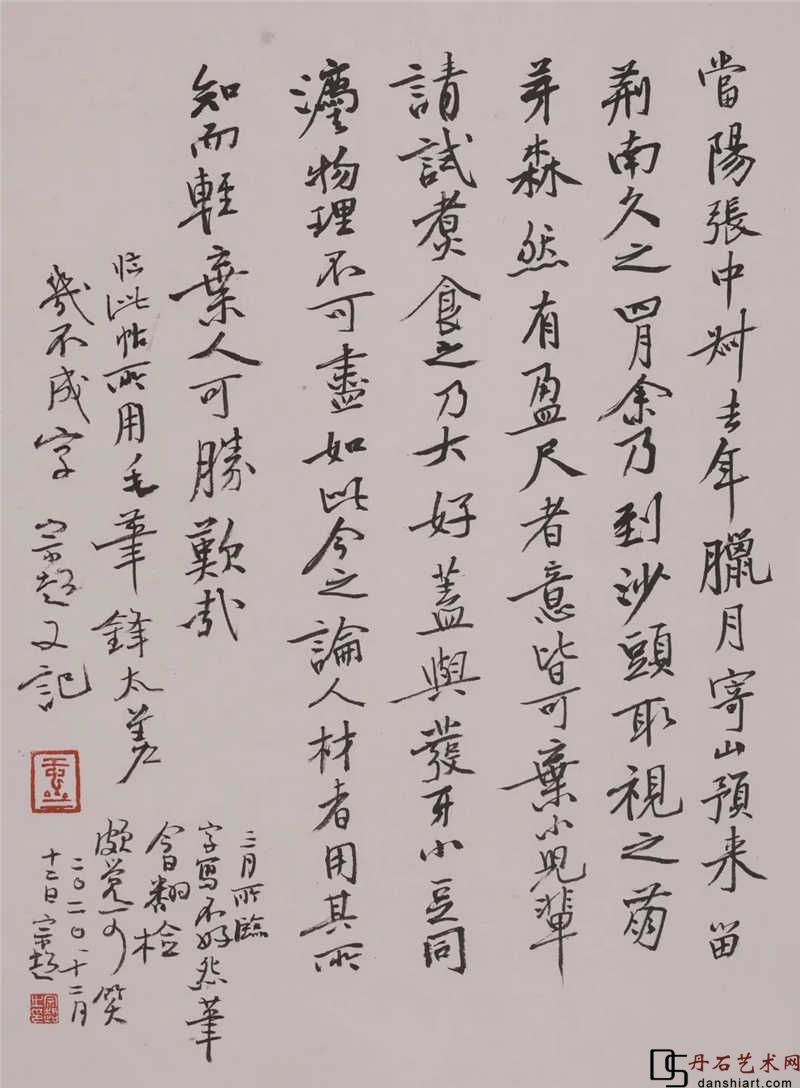 當陽張中叔去年臘月寄山預来留
荆南久之四月余乃到沙頭取視之萌
芽森然有盈尺者意皆可棄小兒輩
請試煮食之乃大好蓋與發牙小豆同
灋物理不可盡如此今之論人材者用其所
知而輕棄人可勝歎哉
临此帖所用毛筆鋒太差
幾不成字 宗超又記
三月所臨
字写不好怨筆
今日翻检
颇覺可笑
二〇二〇·十二月
十二日 宗超
丹石艺术网
danshiart.com